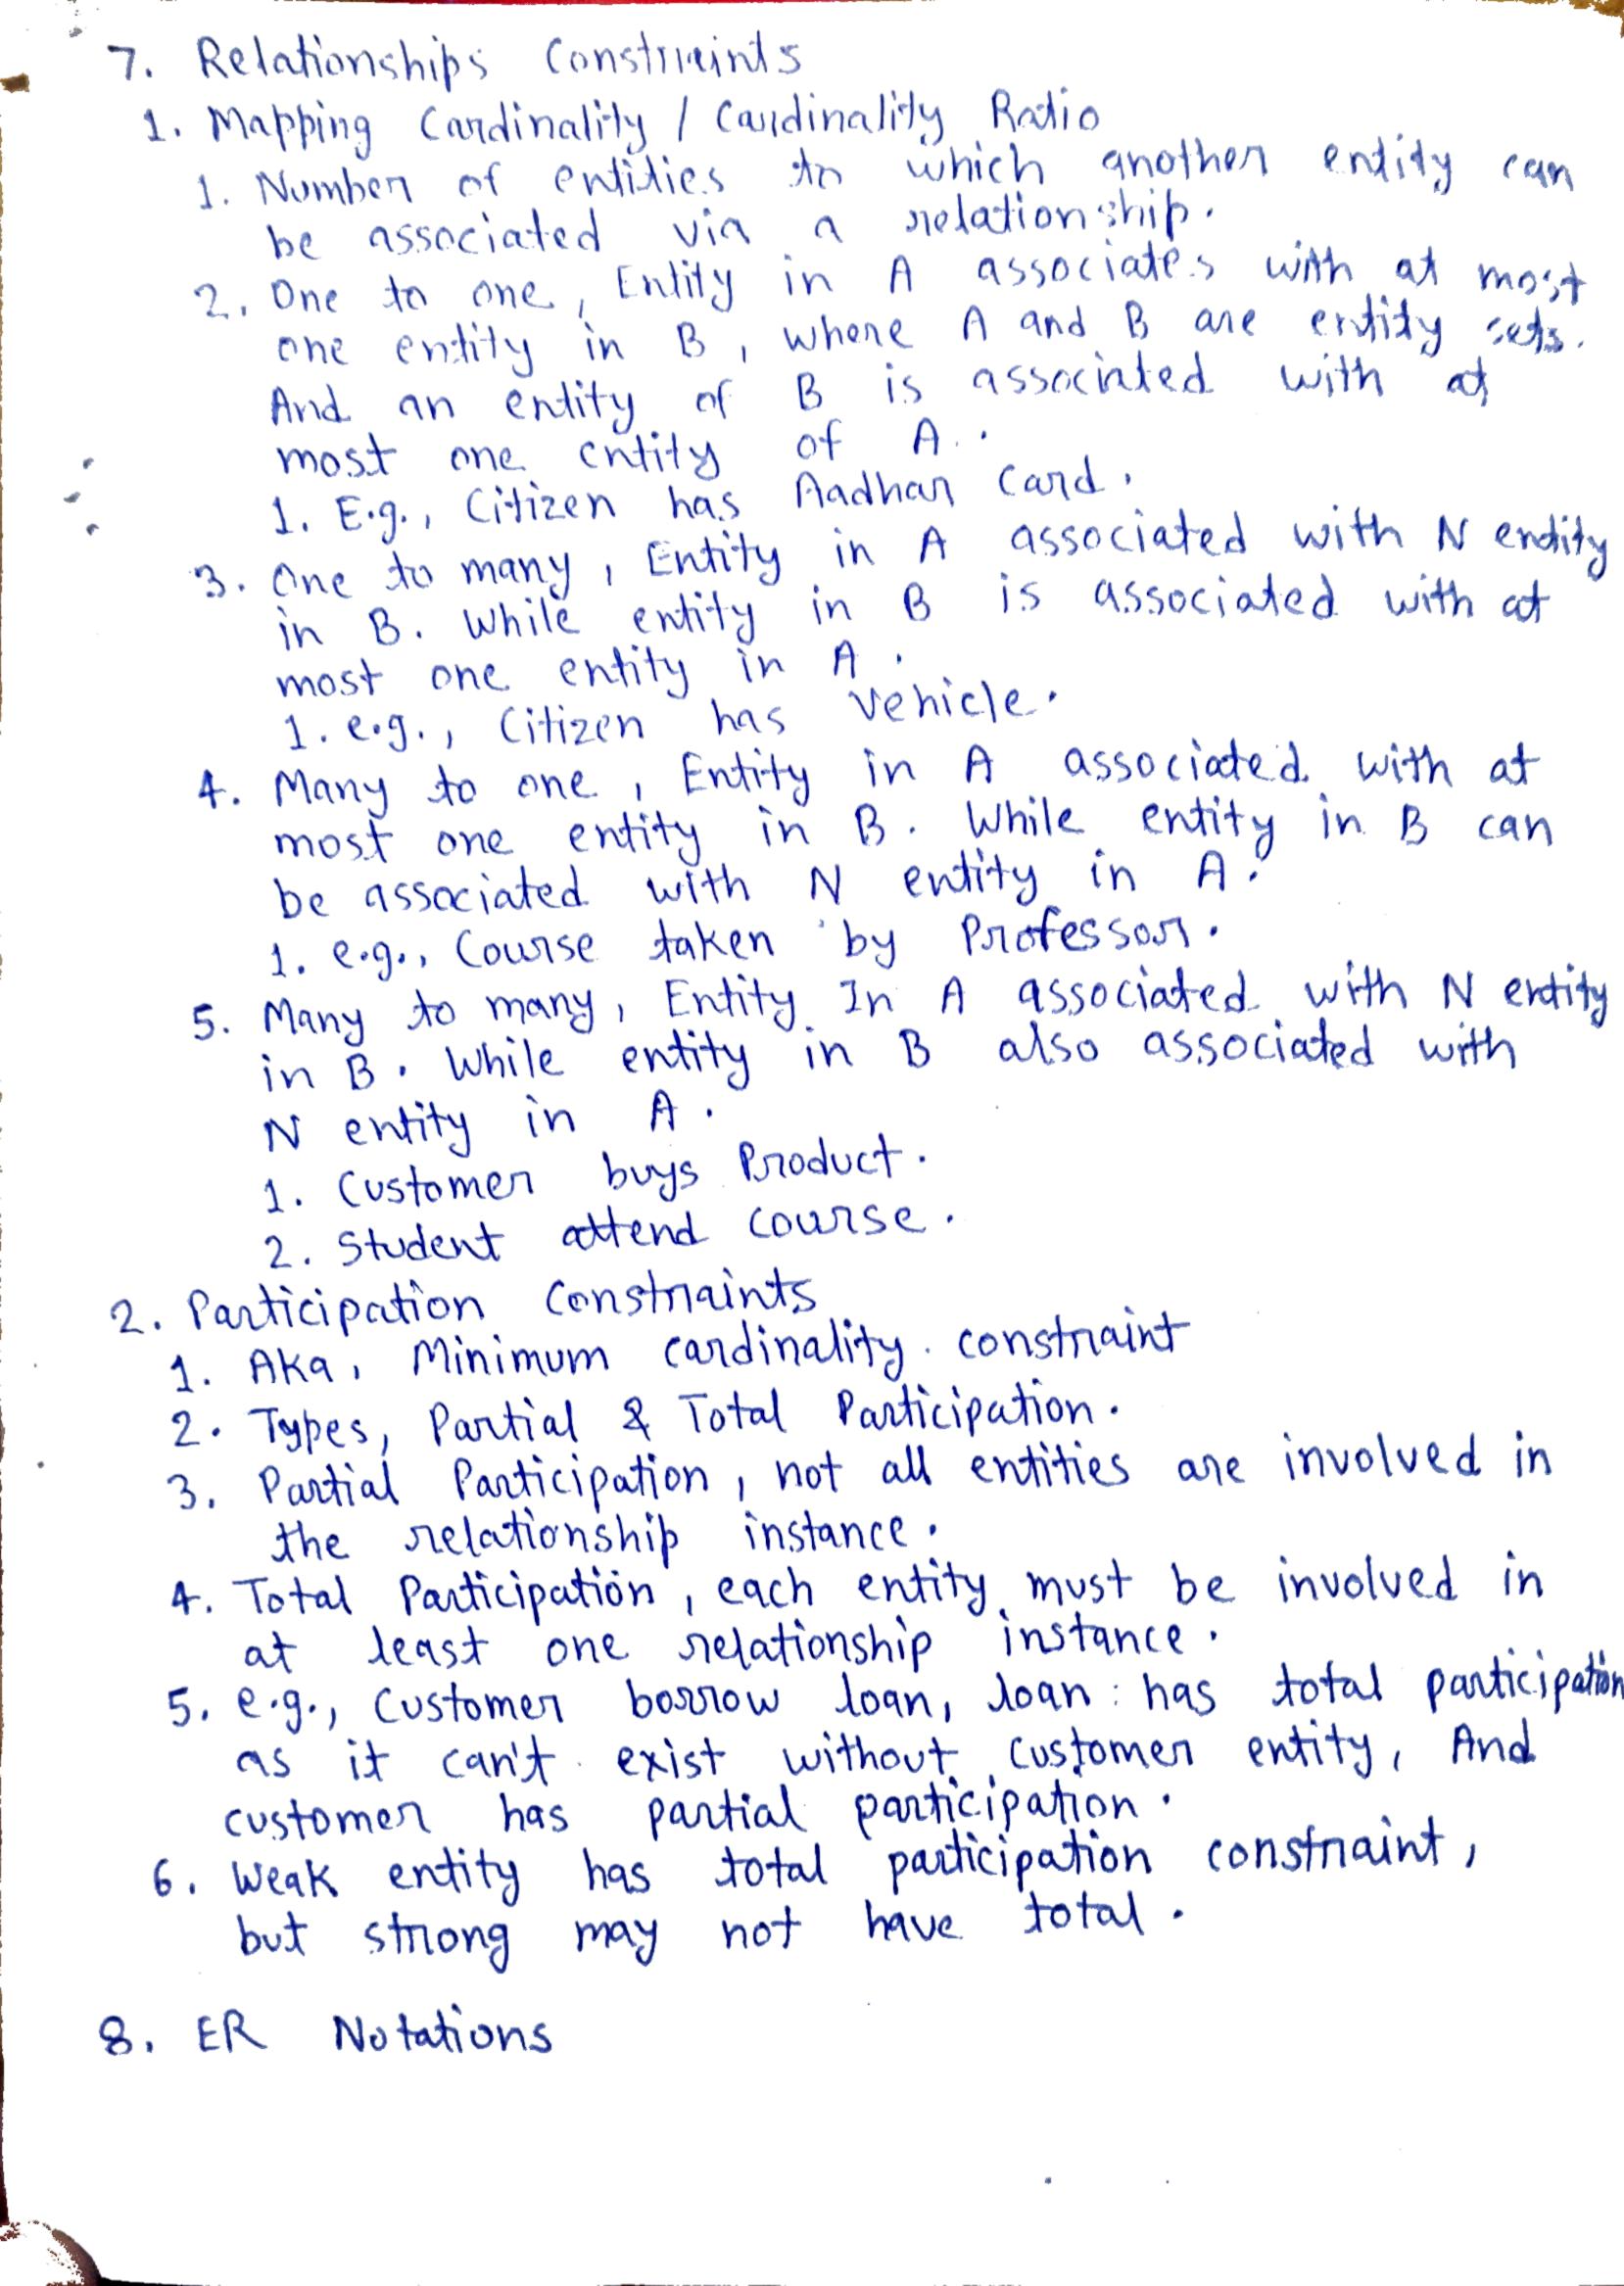 7. Relationships Constraints
1. Mapping Cardinality / Cardinality Ratio
1. Number of entities to which another entity can
be associated via a relationship.
2. One to one, Entity in A associates with at most
one entity in B, where A and B are entity sets.
And an entity of B is associated with at
most one entity of A.
1. E.g., Citizen has Aadhar Card.
3. One to many, Entity in A associated with N entity
in B. While entity in B is associated with at
most one entity in A.
1. e.g., Citizen has Vehicle.
4. Many to one, Entity in A associated with at
most one entity in B. While entity in B can
be associated with N entity in A.
1. e.g., Course taken by Professor.
5. Many to many, Entity In A associated with N entity
in B. While entity in B also associated with
N entity in A.
1. Customer buys Product.
2. Student attend course.
2. Participation Constraints
1. Aka, Minimum cardinality constraint
2. Types, Partial & Total Participation.
3. Partial Participation, not all entities are involved in
the relationship instance.
4. Total Participation, each entity must be involved in
at least one relationship instance.
5. e.g., Customer borrow loan, loan has total participation
as it can't exist without customer entity, And
customer has partial participation.
6. Weak entity has total participation constraint,
but strong may not have total.
8. ER Notations